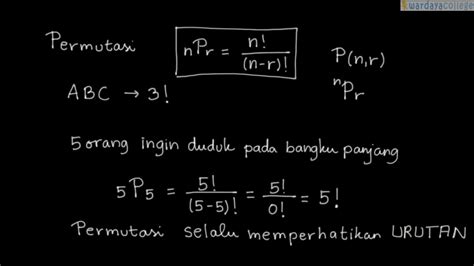 wardayacollege
Permutasi nPr = n! / (n-r)! P(n,r)
ⁿPr
ABC → 3!
5 orang ingin duduk pada bangku panjang
5P5 = 5! / (5-5)! = 5! / 0! = 5!
Permutasi selalu memperhatikan URUTAN